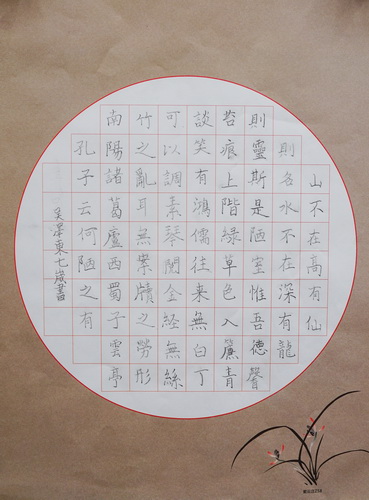 山不在高有仙
則名水不在深有龍
則靈斯是陋室惟吾德馨
苔痕上階綠草色入簾青
談笑有鴻儒往来無白丁
可以調素琴閱金経無絲
竹之亂耳無案牘之勞形
南陽諸葛廬西蜀子雲亭
孔子云何陋之有
吴澤東七歲書